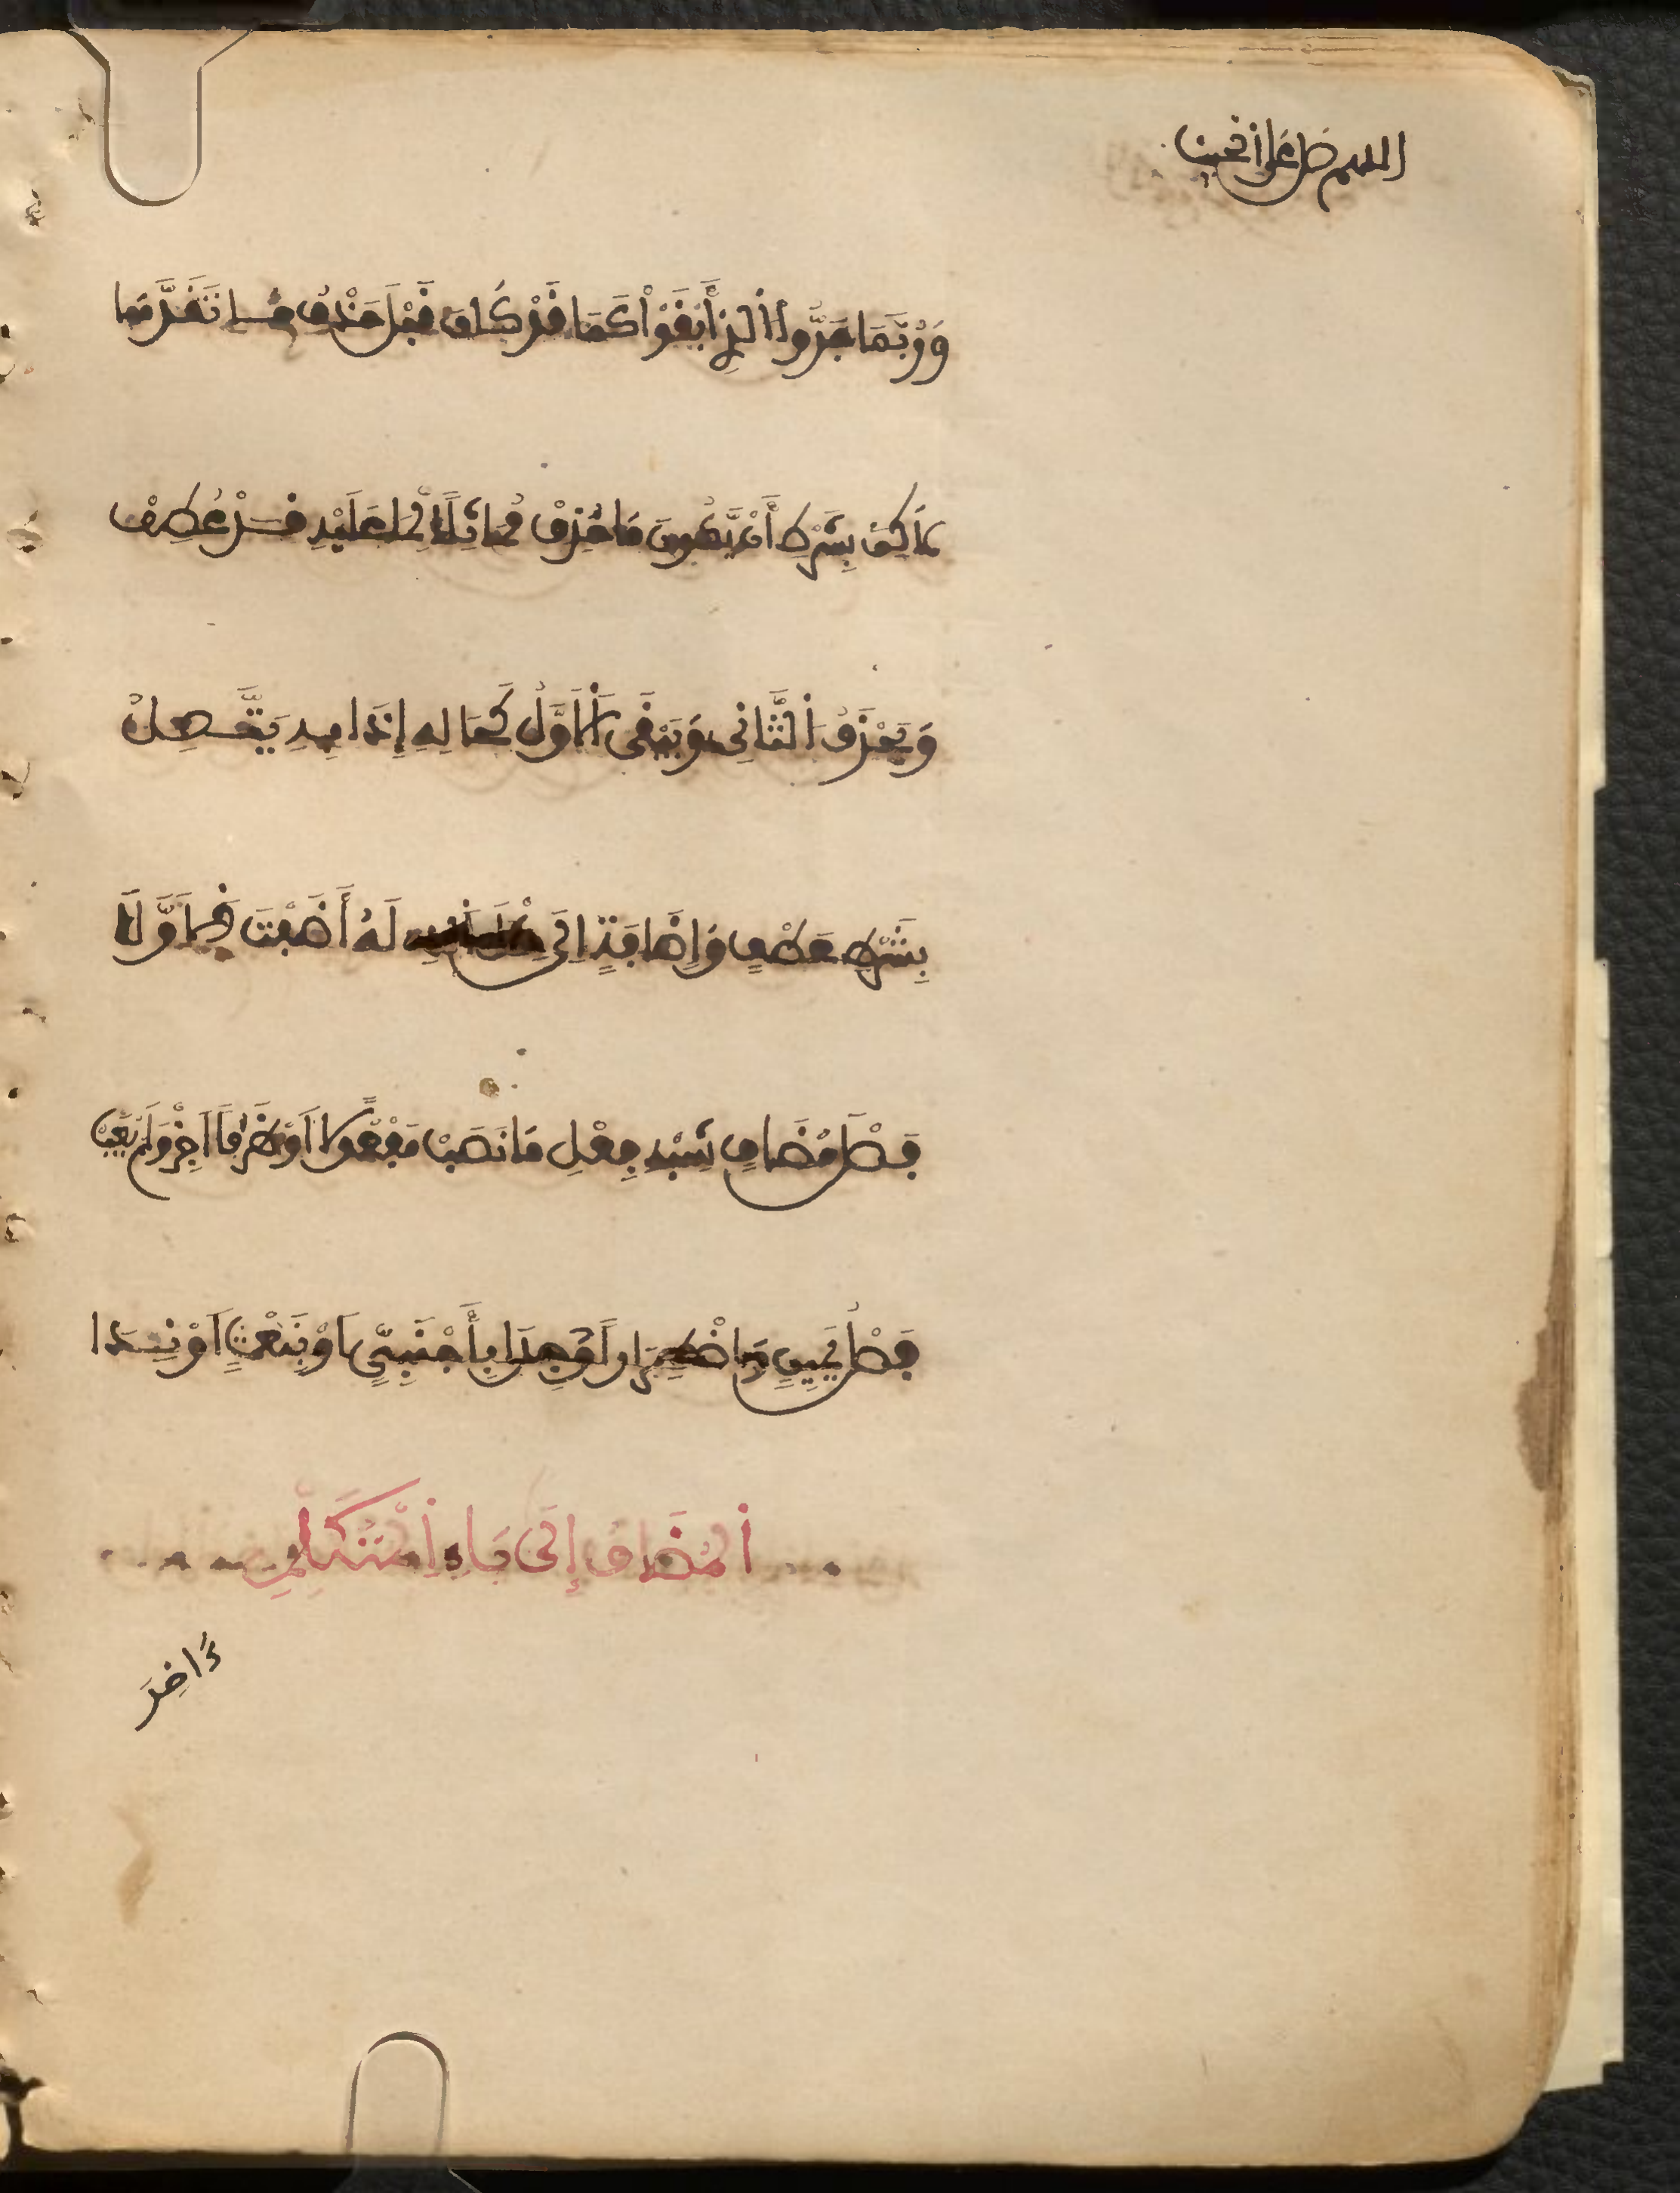 اللهم صل على الحبيب
وَرُبَّمَا جَرُّوا الذِي أَبْقَوْا كَمَا قَدْ كَانَ قَبْلَ حَذْفِ مَا تَقَدَّمَا
لَكِنْ بِشَرْطِ أَنْ يَكُونَ مَا حُذِفْ مُمَاثِلًا لِمَا عَلَيْهِ قَدْ عُطِفْ
وَيُحْذَفُ الثَّانِي وَيَبْقَى الَاوَّلُ كَحَالِهِ إِذَا بِهِ يَتَّصِلُ
بِشَرْطِ عَطْفٍ وَإِضَافَةٍ إِلَى مِثْلِ الذِي لَهُ أَضَفْتَ الَاوَّلَا
فَصْلَ مُضَافٍ شِبْهِ فِعْلٍ مَا نَصَبْ مَفْعُولًا اَوْ ظَرْفًا اَجِزْ وَلَمْ يُعَبْ
فَصْلُ يَمِينٍ وَاضْطِرَارًا وُجِدَا بِأَجْنَبِيٍّ اَوْ بِنَعْتٍ اَوْ نِدَا
الْمُضَافُ إِلَى يَاءِ الْمُتَكَلِّمِ
ءَاخِرَ